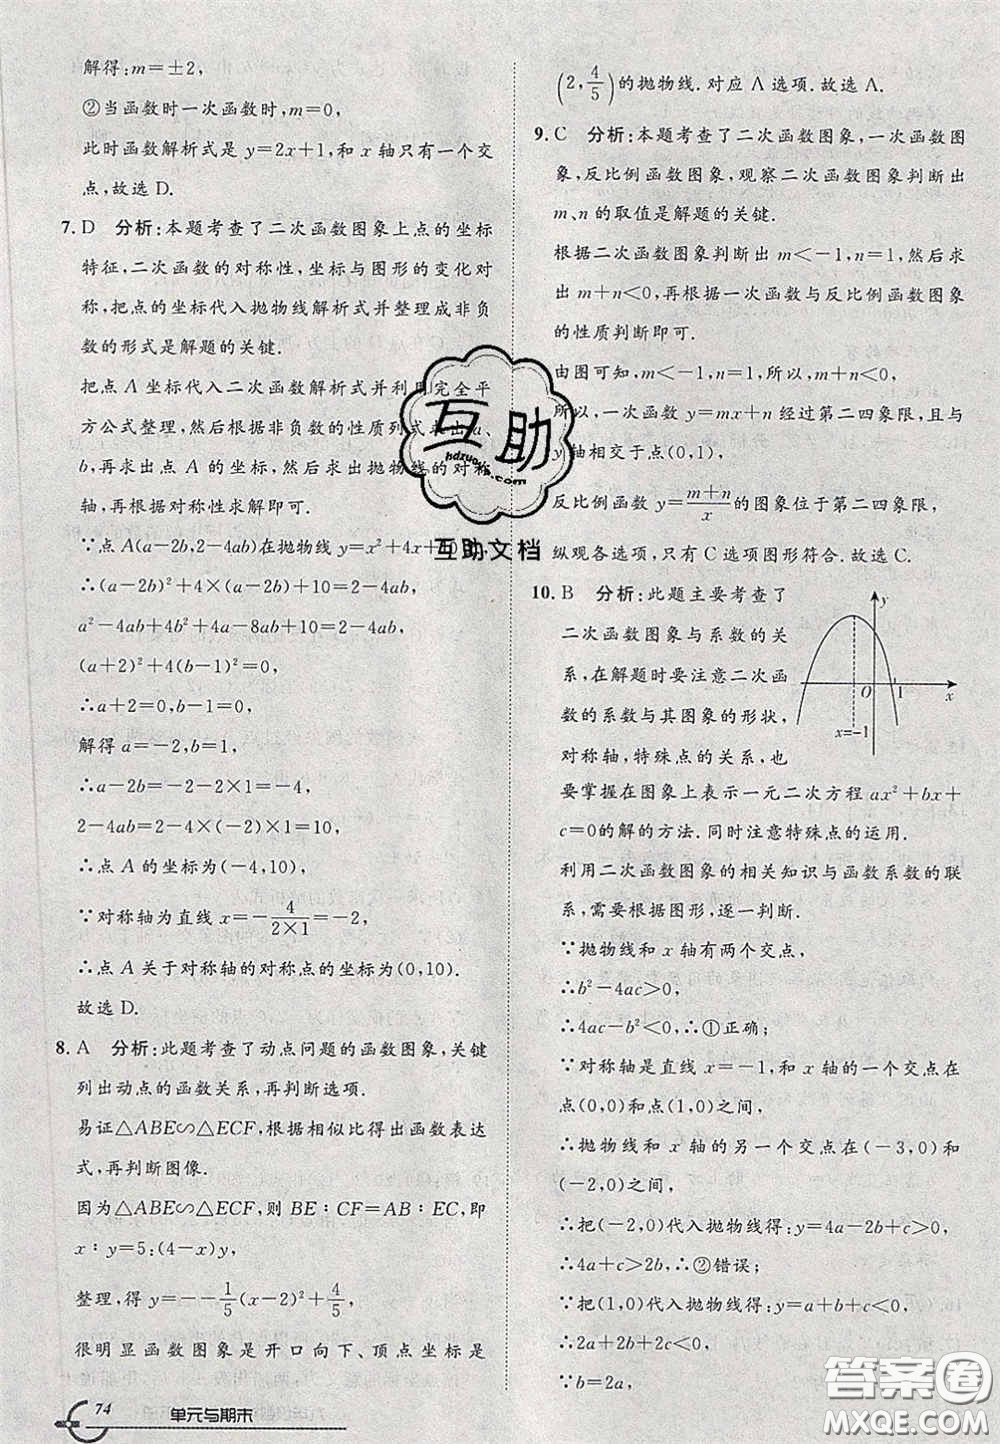 解得:m=±2,
②当函数时一次函数时,m=0,
此时函数解析式是 y=2x+1,和 x 轴只有一个交
点,故选 D.
7. D 分析:本题考查了二次函数图象上点的坐标
特征,二次函数的对称性,坐标与图形的变化对
称,把点的坐标代入抛物线解析式并整理成非负
数的形式是解题的关键.
把点 A 坐标代入二次函数解析式并利用完全平
方公式整理,然后根据非负数的性质列式求出 a、
b,再求出点 A 的坐标,然后求出抛物线的对称
轴,再根据对称性求解即可.
∵点 A(a-2b,2-4ab)在抛物线 y=x²+4x+10
∴(a-2b)²+4×(a-2b)+10=2-4ab,
a²-4ab+4b²+4a-8b+10=2-4ab,
(a+2)²+4(b-1)²=0,
∴a+2=0,b-1=0,
解得 a=-2,b=1,
∴a-2b=-2-2×1=-4,
2-4ab=2-4×(-2)×1=10,
∴点 A 的坐标为(-4,10).
∵对称轴为直线 x=-4/(2×1)=-2,
∴点 A 关于对称轴的对称点的坐标为(0,10).
故选 D.
8. A 分析:此题考查了动点问题的函数图象,关键
列出动点的函数关系,再判断选项.
易证△ABE∽△ECF,根据相似比得出函数表达
式,再判断图像.
因为△ABE∽△ECF,则 BE∶CF=AB∶EC,即
x∶y=5:(4-x)y,
整理,得 y=-1/5(x-2)²+4/5
很明显函数图象是开口向下、顶点坐标是
(2,4/5)的抛物线.对应 A 选项.故选 A.
9. C 分析:本题考查了二次函数图象,一次函数图
象,反比例函数图象,观察二次函数图象判断出
m、n 的取值是解题的关键.
根据二次函数图象判断出 m<-1,n=1,然后求
出 m+n<0,再根据一次函数与反比例函数图象
的性质判断即可.
由图可知,m<-1,n=1,所以,m+n<0,
所以,一次函数 y=mx+n 经过第二四象限,且与
y 轴相交于点(0,1),
反比例函数 y=(m+n)/x 的图象位于第二四象限,
纵观各选项,只有 C 选项图形符合.故选 C.
10. B 分析:此题主要考查了
二次函数图象与系数的关
系,在解题时要注意二次函
数的系数与其图象的形状,
对称轴,特殊点的关系,也
要掌握在图象上表示一元二次方程 ax²+bx+
c=0的解的方法.同时注意特殊点的运用.
y
O
1
x
x=-1
利用二次函数图象的相关知识与函数系数的联
系,需要根据图形,逐一判断.
∵抛物线和 x 轴有两个交点,
∴b²-4ac>0,
∴4ac-b²<0,∴①正确;
∵对称轴是直线 x=-1,和 x 轴的一个交点在
点(0,0)和点(1,0)之间,
∴抛物线和 x 轴的另一个交点在(-3,0)和
(-2,0)之间,
∴把(-2,0)代入抛物线得:y=4a-2b+c>0,
∴4a+c>2b,∴②错误;
∵把(1,0)代入抛物线得:y=a+b+c<0,
∴2a+2b+2c<0,
∵b=2a,
74 单元与期末
互助
hdzuoye.com
互助文档
答案圈
MXQE.COM